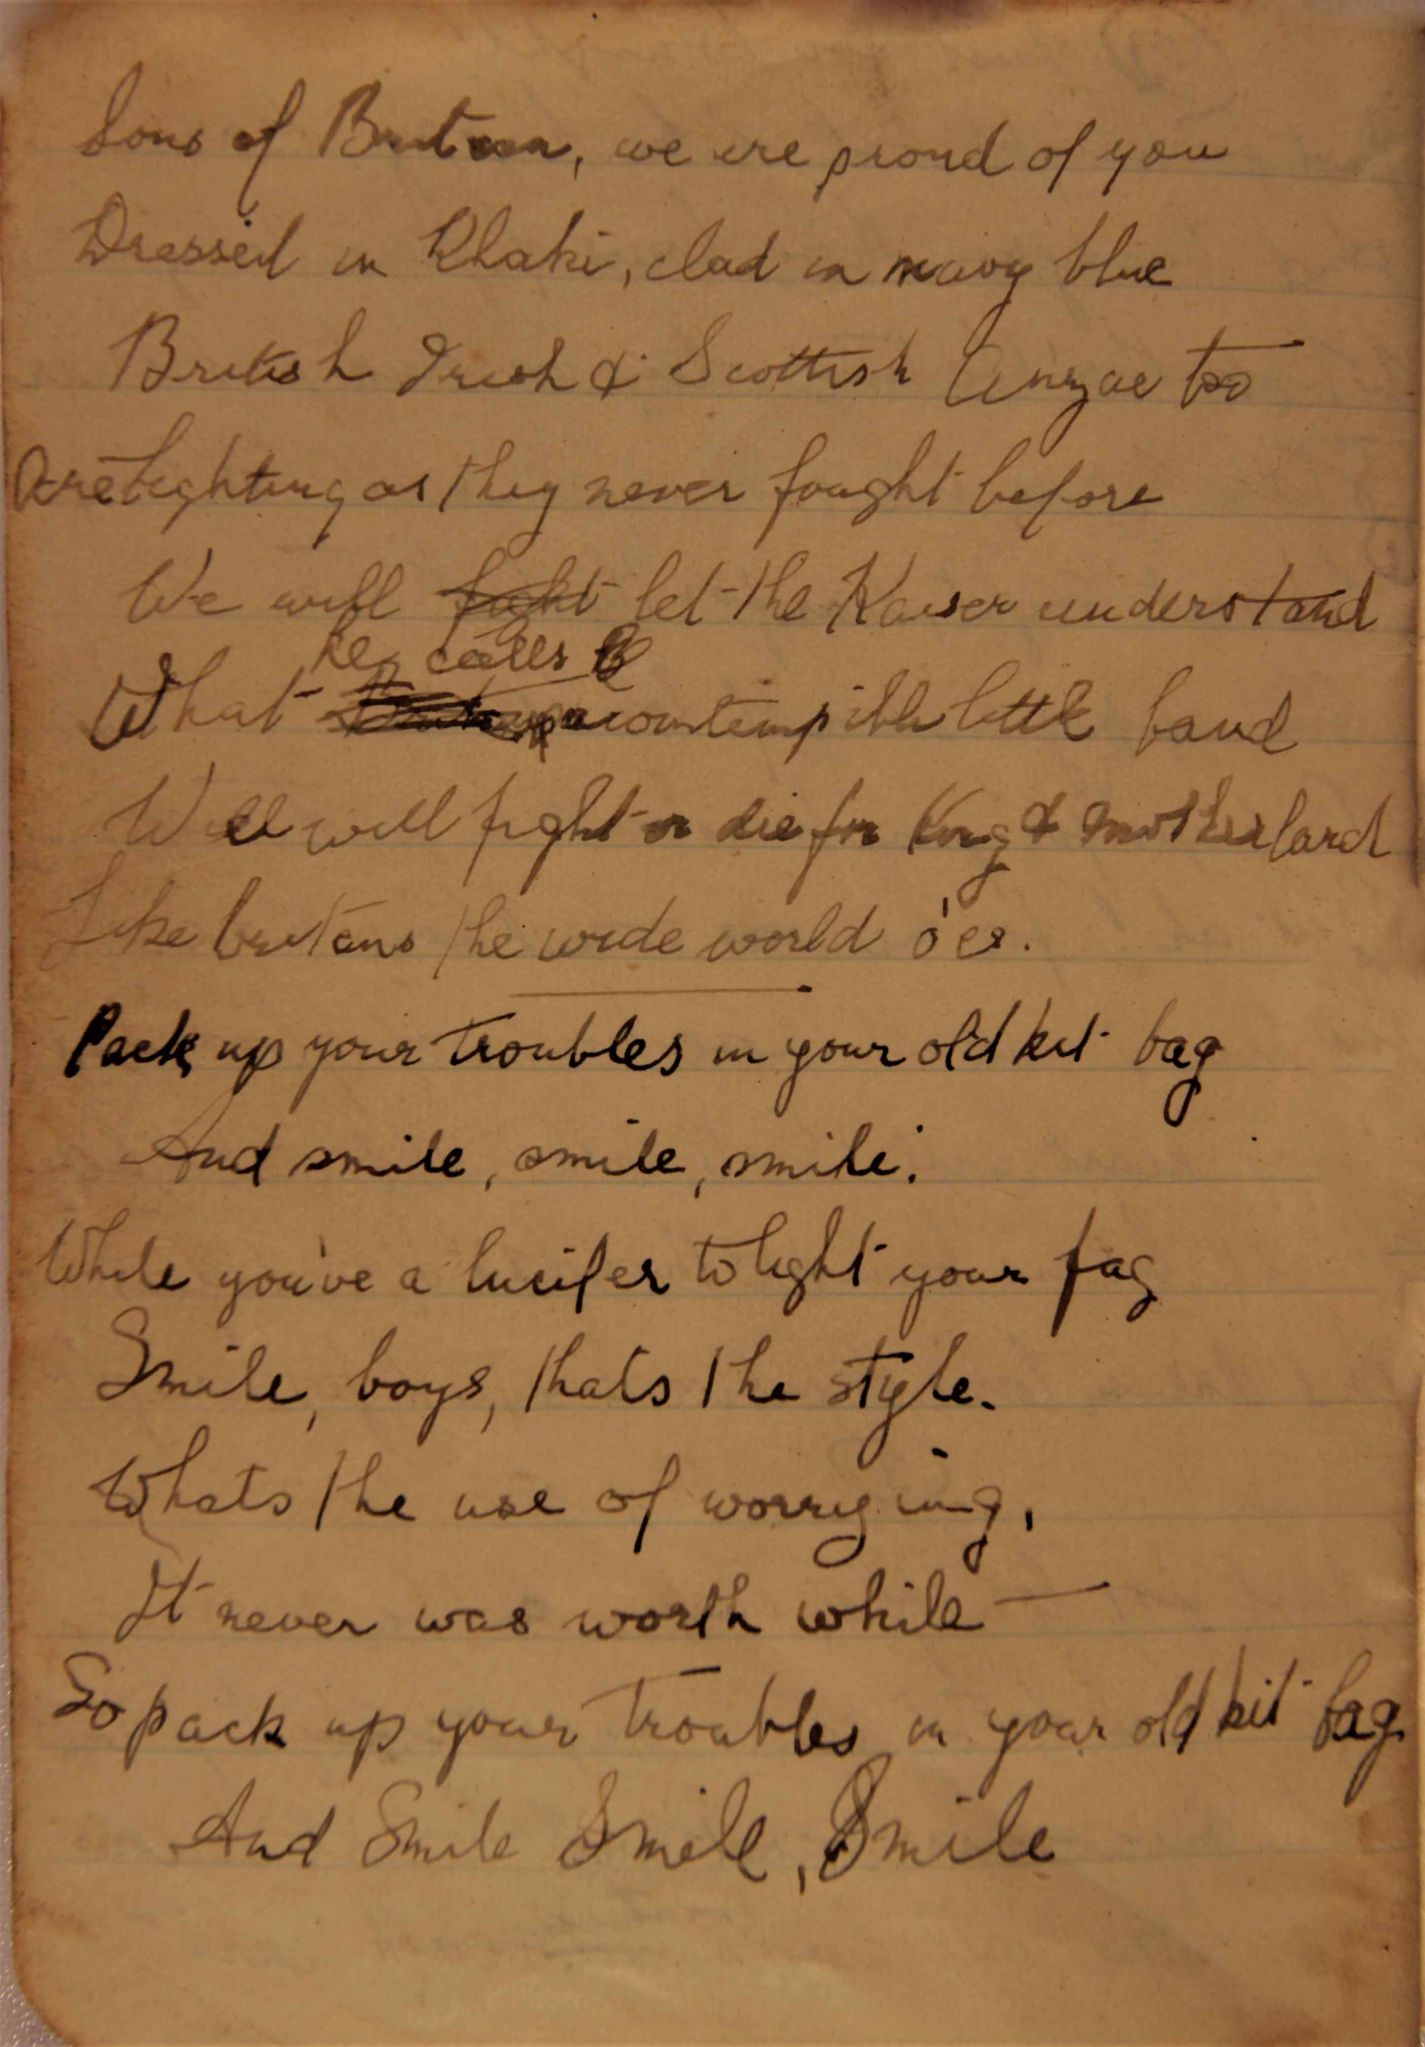 Sons of Britain, we are proud of you
Dressed in Khaki, clad in navy blue
British Irish & Scottish Anzac too
Are fighting as they never fought before
We will fight let the Kaiser understand
he calls a
What contempible little band
Well will fight or die for King & motherland
Like britons the wide world o'er.
Pack up your troubles in your old kit bag
And smile, smile, smile.
While you've a lucifer to light your fag
Smile, boys, thats the style.
Whats the use of worrying,
It never was worth while —
So pack up your troubles in your old kit bag
And Smile Smile, Smile